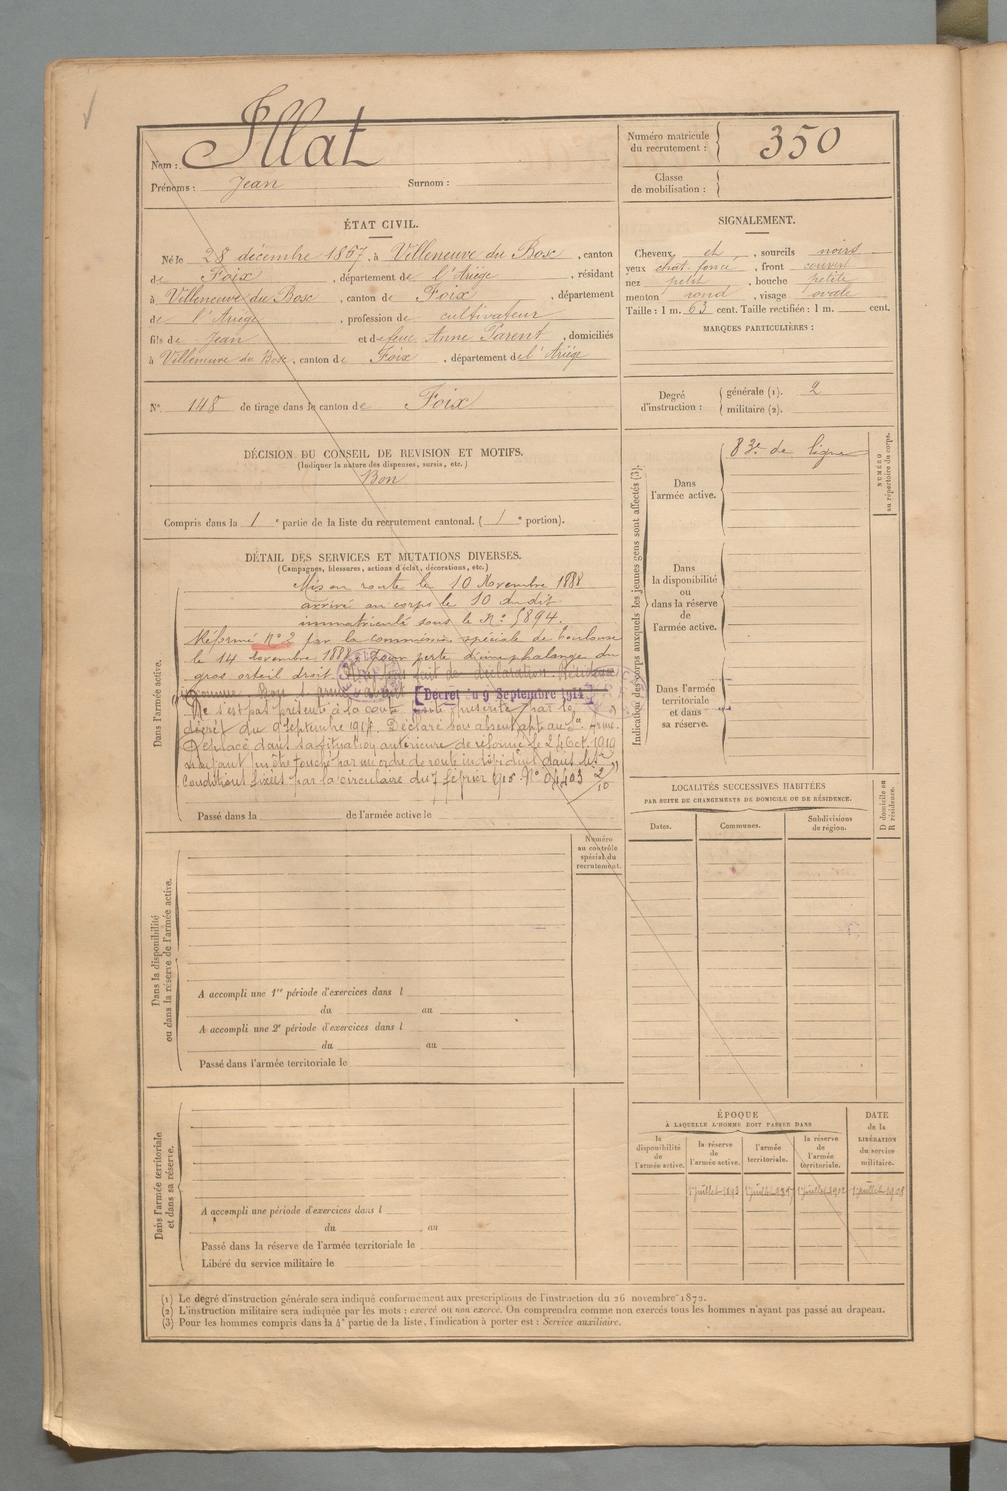 Nom : Illat
Prénoms : Jean Surnom :
Numéro matricule du recrutement : 350
Classe de mobilisation :
ÉTAT CIVIL.
Né le 28 décembre 1867, à Villeneuve du Bosc, canton
de Foix, département de l'Ariège, résidant
à Villeneuve du Bosc, canton de Foix, département
de l'Ariège, profession de cultivateur
fils de Jean et de feue Anne Parent, domiciliés
à Villeneuve du Bosc, canton de Foix, département de l'Ariège
N° 148 de tirage dans le canton de Foix
SIGNALEMENT.
Cheveux et, sourcils noirs
yeux chat. foncé, front couvert
nez petit, bouche petite
menton rond, visage ovale
Taille : 1 m. 63 cent. Taille rectifiée : 1 m. cent.
MARQUES PARTICULIÈRES :
Degré d'instruction : générale (1). 2
militaire (2).
DÉCISION DU CONSEIL DE REVISION ET MOTIFS.
(Indiquer la nature des dispenses, sursis, etc.)
Bon
Compris dans la 1e partie de la liste du recrutement cantonal. (1e portion).
DÉTAIL DES SERVICES ET MUTATIONS DIVERSES.
(Campagnes, blessures, actions d'éclat, décorations, etc.)
Dans l'armée active.
Mis en route le 10 Novembre 1888
arrivé au corps le 10 du dit
immatriculé sous le N° 5894.
Réformé N° 2 par la commission spéciale de Toulouse
le 14 novembre 1888, pour perte d'une phalange du
gros orteil droit. fait de déclaration
Décret du 9 Septembre 1914
Ne s'est pas présenté à la visite prescrite par le
décret du 9 Septembre 1914. Déclaré bon absent apt au Sce armé.
Replacé dans sa situation antérieure de réformé le 24 Oct. 1919
n'ayant pu être touché par un ordre de route individuel dans les
conditions fixées par la circulaire du 7 février 1915 N° 04403 2/10
Passé dans la de l'armée active le
Indication des corps auxquels les jeunes gens sont affectés (3).
NUMÉRO au répertoire du corps.
Dans l'armée active.
83e de ligne
Dans la disponibilité ou dans la réserve de l'armée active.
Dans l'armée territoriale et dans sa réserve.
LOCALITÉS SUCCESSIVES HABITÉES
PAR SUITE DE CHANGEMENTS DE DOMICILE OU DE RÉSIDENCE.
Dates. Communes. Subdivisions de région.
D domicile ou R résidence.
Dans la disponibilité ou dans la réserve de l'armée active.
Numéro au contrôle spécial du recrutement.
A accompli une 1re période d'exercices dans l
du au
A accompli une 2e période d'exercices dans l
du au
Passé dans l'armée territoriale le
Dans l'armée territoriale et dans sa réserve.
A accompli une période d'exercices dans l
du au
Passé dans la réserve de l'armée territoriale le
Libéré du service militaire le
ÉPOQUE
À LAQUELLE L'HOMME DOIT PASSER DANS
la disponibilité de l'armée active.
la réserve de l'armée active.
l'armée territoriale.
la réserve de l'armée territoriale.
DATE de la LIBÉRATION du service militaire.
1er juillet 1893 1er juillet 1902 1er juillet 1908
(1) Le degré d'instruction générale sera indiqué conformément aux prescriptions de l'instruction du 26 novembre 1872.
(2) L'instruction militaire sera indiquée par les mots : exercé ou non exercé. On comprendra comme non exercés tous les hommes n'ayant pas passé au drapeau.
(3) Pour les hommes compris dans la 4e partie de la liste, l'indication à porter est : Service auxiliaire.